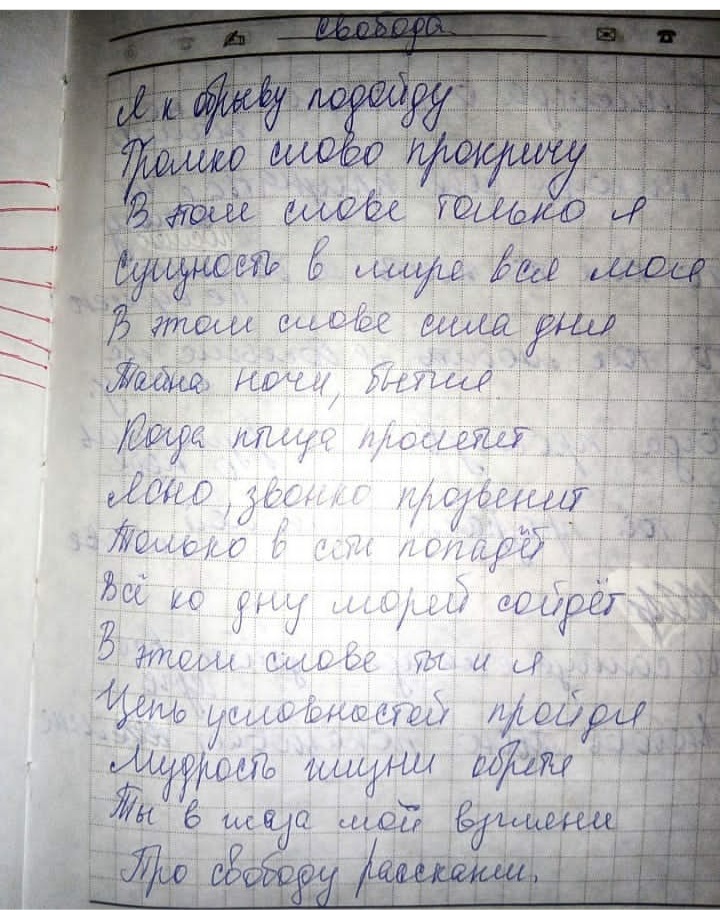 Свобода
Я к обрыву подойду
Громко слово прокричу
В этом слове только я
Сущность в мире вся моя
В этом слове сила дня
Тайна ночи, бытия
Когда птица пролетит
Ясно, звонко прозвенит
Только в сети попадёт
Всё ко дну морей сойдёт
В этом слове ты и я
Цепь условностей пройдя
Мудрость жизни обретя
Ты в глаза мои взгляни
Про свободу расскажи.